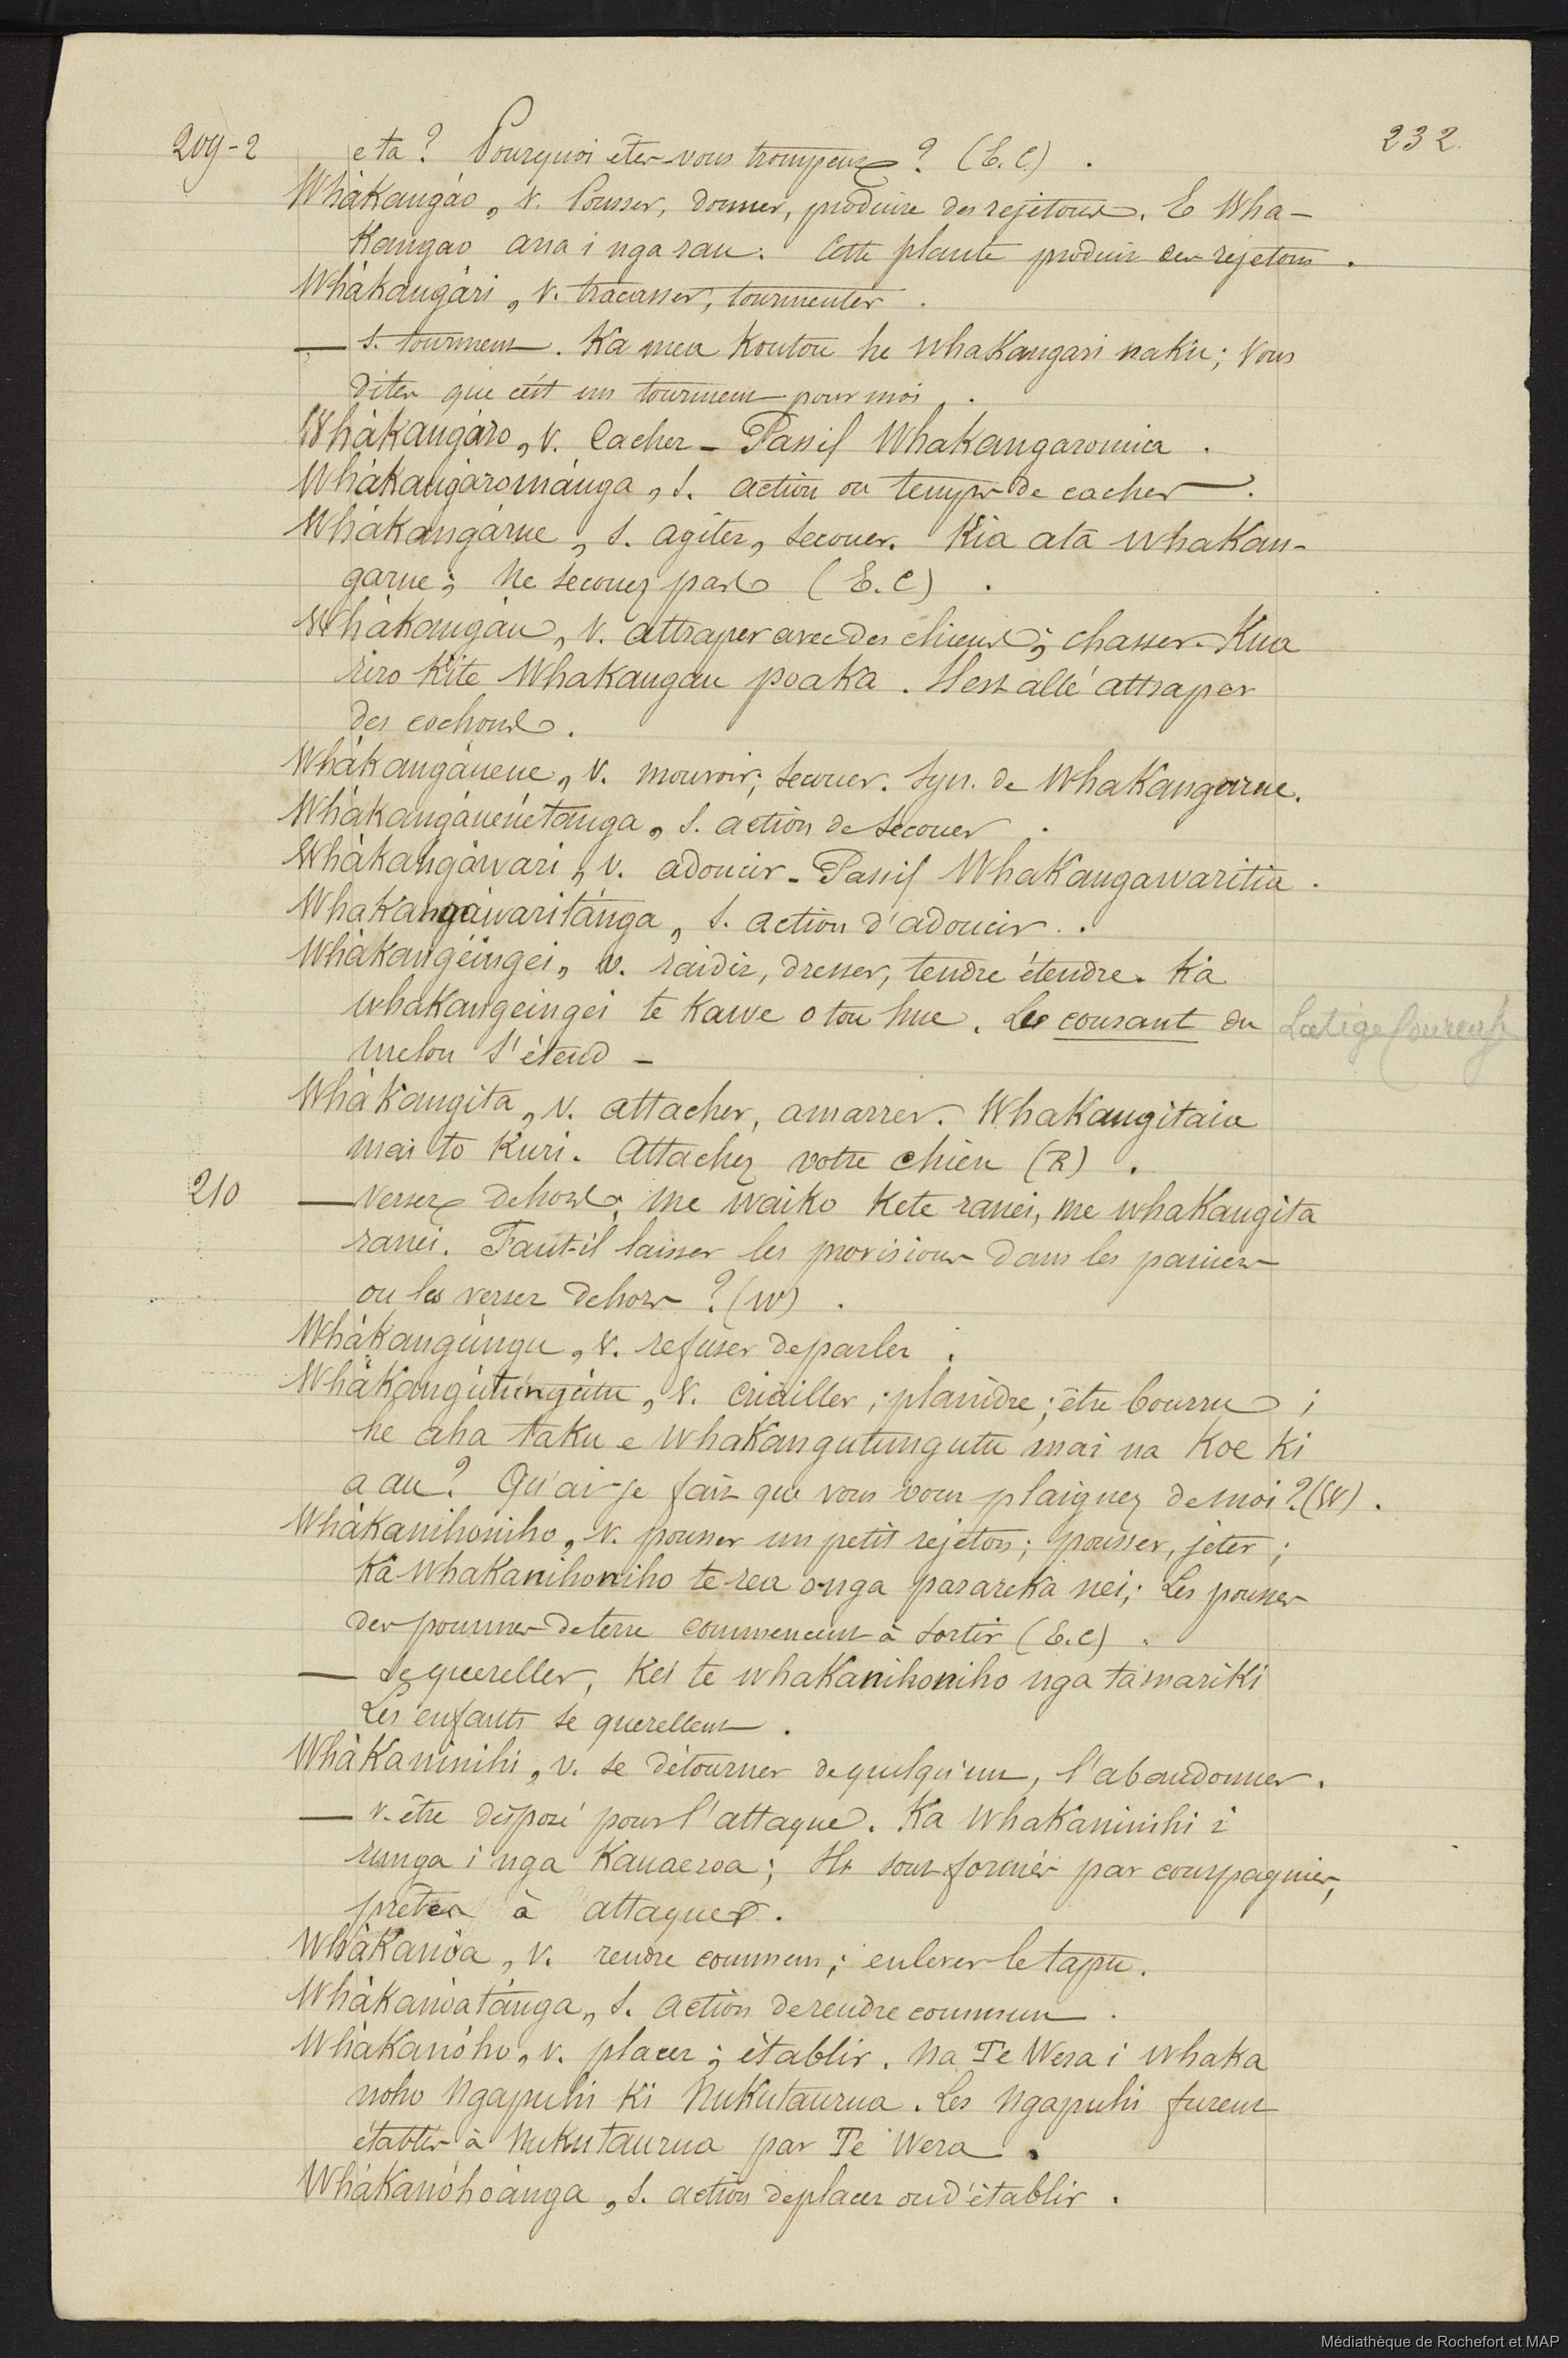 209-2
232.
e ta? Pourquoi êtes-vous trompeurs? (E.C) .
Whàkangáo, v. Pousser, donner, produire des rejetons. E Wha-
kangao ana i nga rau. Cette plante produit des rejetons.
Whàkangàri, v. tracasser, tourmenter.
— s. tourment. Ka mea koutou he whakangari naku; Vous
dites que c'est un tourment pour moi.
Whàkangàro, v. Cacher - Passif Whakangaromia.
Whàkangàromànga, s. action ou temps de cacher.
Whàkangàrue, s. agiter, secouer. Kia ata whakan-
garue; ne secouez pas (E.C) .
Whàkangàu, v. attraper avec des chiens; chasser. Kua
riro kite Whakangau poaka. Il est allé attraper
des cochons.
Whàkangàueue, v. mouvoir; secouer. Syn. de Whakangarue.
Whàkangàueuetanga, s. action de secouer.
Whàkangàwari, v. adoucir - Passif Whakangawaritia.
Whakangàwaritànga, s. action d'adoucir.
Whàkangèingei, v. raidir, dresser, tendre étendre. Ka
whakangeingei te kawe o tou hue. Le courant du
La tige coureuse
melon s'étend -
Whàkangita, v. attacher, amarrer. Whakangitaia
mai to kuri. Attachez votre chien (R) .
210
— Verser dehors; me waiho kete ranei, me whakangita
ranei. Faut-il laisser les provisions dans les paniers
ou les verser dehors? (W) .
Whàkangùngu, v. refuser de parler.
Whàkangùtungùtu, v. criailler; plaindre; être bourru;
he aha taku e whakangutungutu mai na koe ki
a au? Qu'ai-je fait que vous vous plaignez de moi? (W) .
Whàkanihoniho, v. pousser un petit rejeton; pousser, jeter;
ka whakanihoniho te rea o nga parareka nei; Les pousses
des pommes de terre commencent à sortir (E.C) .
— Se quereller, kei te whakanihoniho nga tamariki
Les enfants se querellent.
Whàkaninihi, v. se détourner de quelqu'un, l'abandonner.
— v. être disposé pour l'attaque. Ka whakaninihi i
runga i nga kauaeroa; Ils sont formés par compagnies,
prêtes à attaquer.
Whàkanòa, v. rendre commun; enlever le tapu.
Whàkanòatànga, s. action de rendre commun.
Whàkanòho, v. placer; établir. Na Te Wera i whaka
noho Ngapuhi ki Nukutaurua. Les Ngapuhi furent
établis à Nukutaurua par Te Wera.
Whàkanòhoànga, s. action de placer ou d'établir.
Médiathèque de Rochefort et MAP